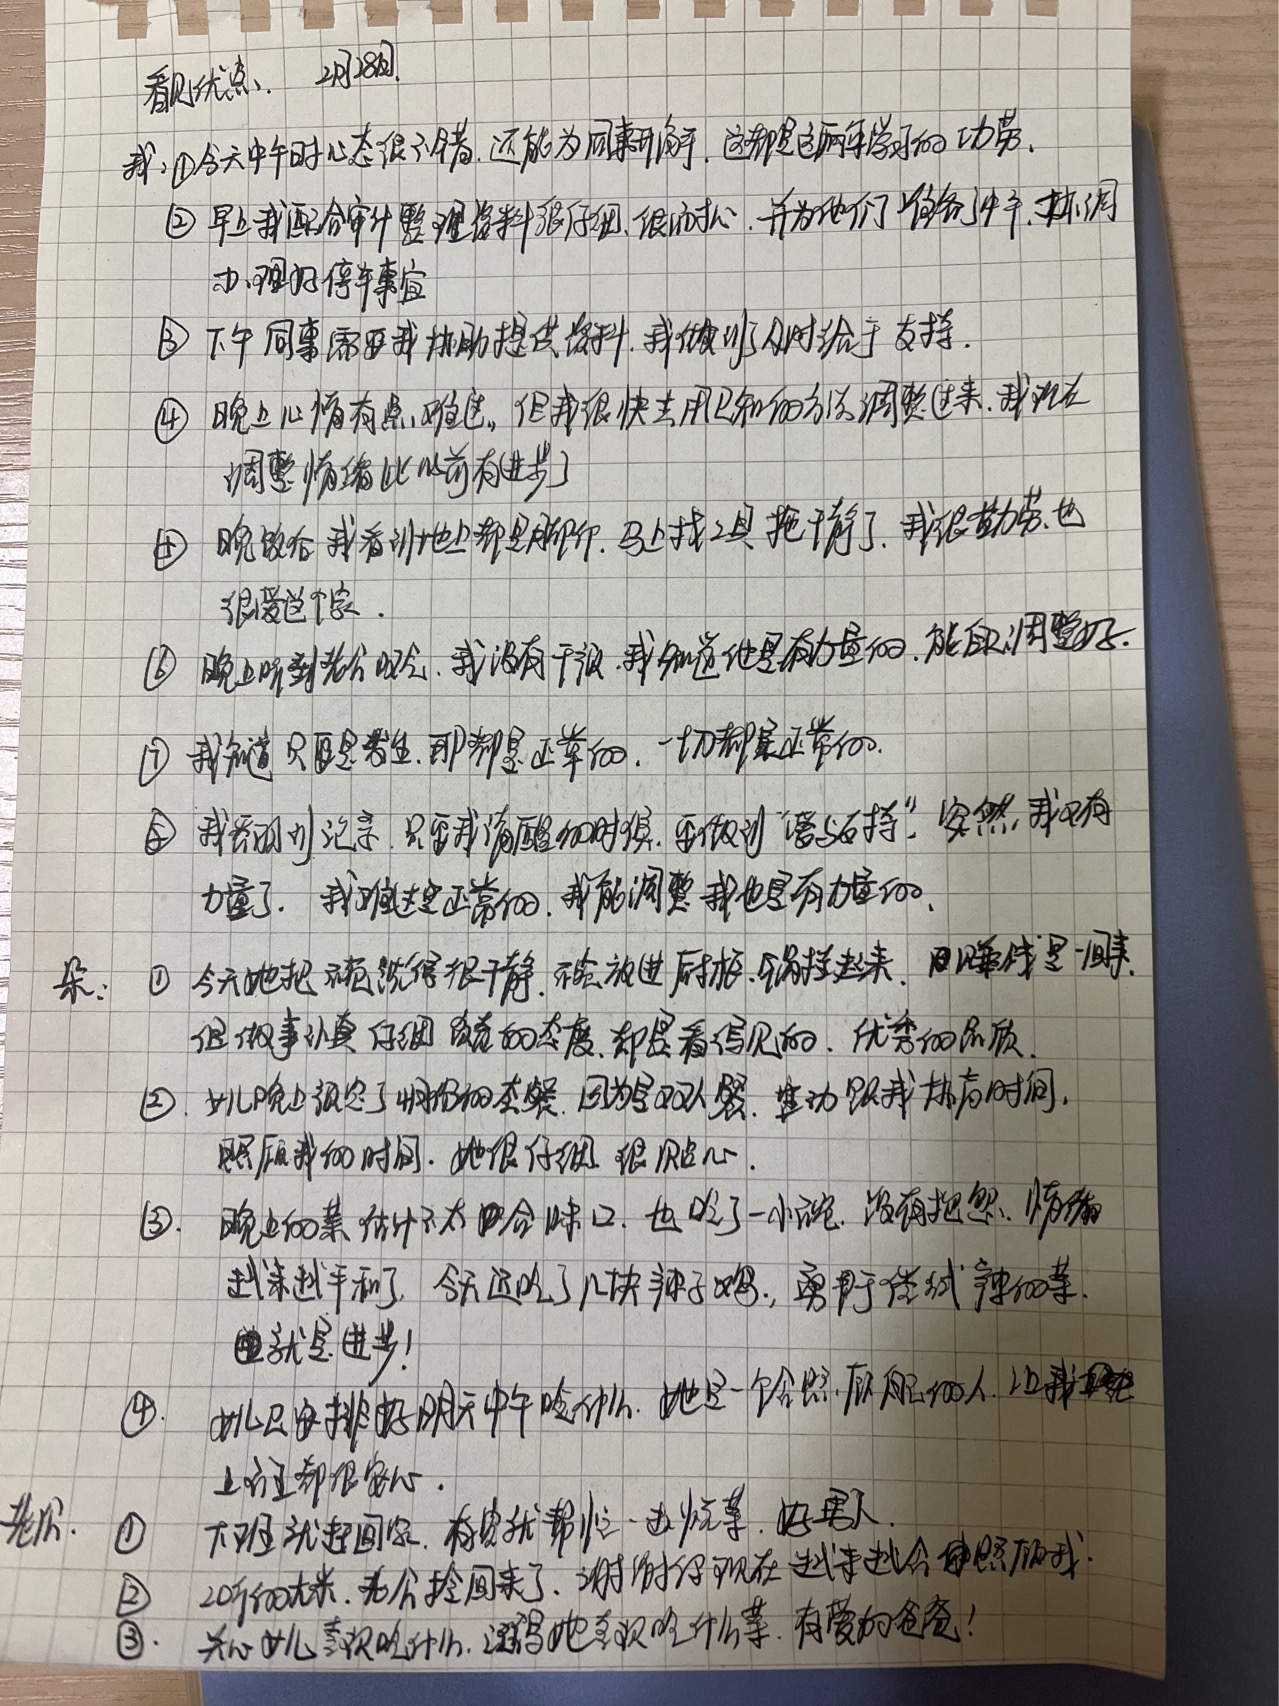 看见优点、 2月28日.
我:①今天中午时心态很不错,还能为同事开解,这都是这两年学习的功劳.
② 早上我配合审计整理资料很仔细、很耐心,并为他们准备了中午,协调
办理好停车事宜
③ 下午同事需要我协助提供资料,我做到了及时给于支持.
④ 晚上心情有点难过,但我很快去用已知的方法调整过来,我现在
调整情绪比以前有进步了
⑤ 晚饭后我看到地上都是脚印,马上找工具拖干静了,我很勤劳,也
很爱这个家.
⑥ 晚上听到老公叹气,我没有干预,我知道他是有力量的,能自己调整好.
⑦ 我知道只要是发生,那都是正常的,一切都是正常的.
⑧ 我看到 只要我清醒的时候,要做到“爱与支持”,突然,我没有
力量了. 我难过是正常的,我能调整 我也是有力量的、
朵: ① 今天她把碗洗得很干静,碗放进厨柜,锅挂起来, 赚钱是一回事,
但做事认真仔细 负责的态度,都是看得见的,优秀的品质.
②. 女儿晚上预定了 的套餐,因为是双人餐,主动跟我协商时间,
照顾我的时间.她很仔细,很贴心.
③. 晚上的菜估计不太合味口,也吃了一小碗,没有抱怨、情绪
越来越平和了,今天还吃了几块辣子鸡,勇于尝试辣的菜.
这就是进步!
④. 女儿已安排好明天中午吃什么,她是一个会照顾自己的人,让我
上班都很安心.
老公. ① 下班就赶回家,看见就帮忙一起烧菜,好男人.
② 20斤的大米,老公拎回来了,谢谢你现在越来越会照顾我.
③. 关心女儿喜欢吃什么,记得她喜欢吃什么菜,有爱的爸爸!